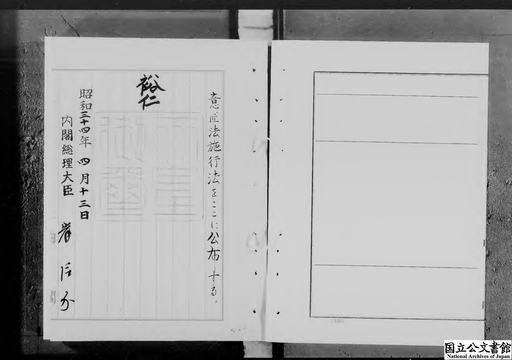 意匠法施行法をここに公布する。
裕仁
昭和三十四年四月十三日
内閣総理大臣 岸信介
国立公文書館
National Archives of Japan